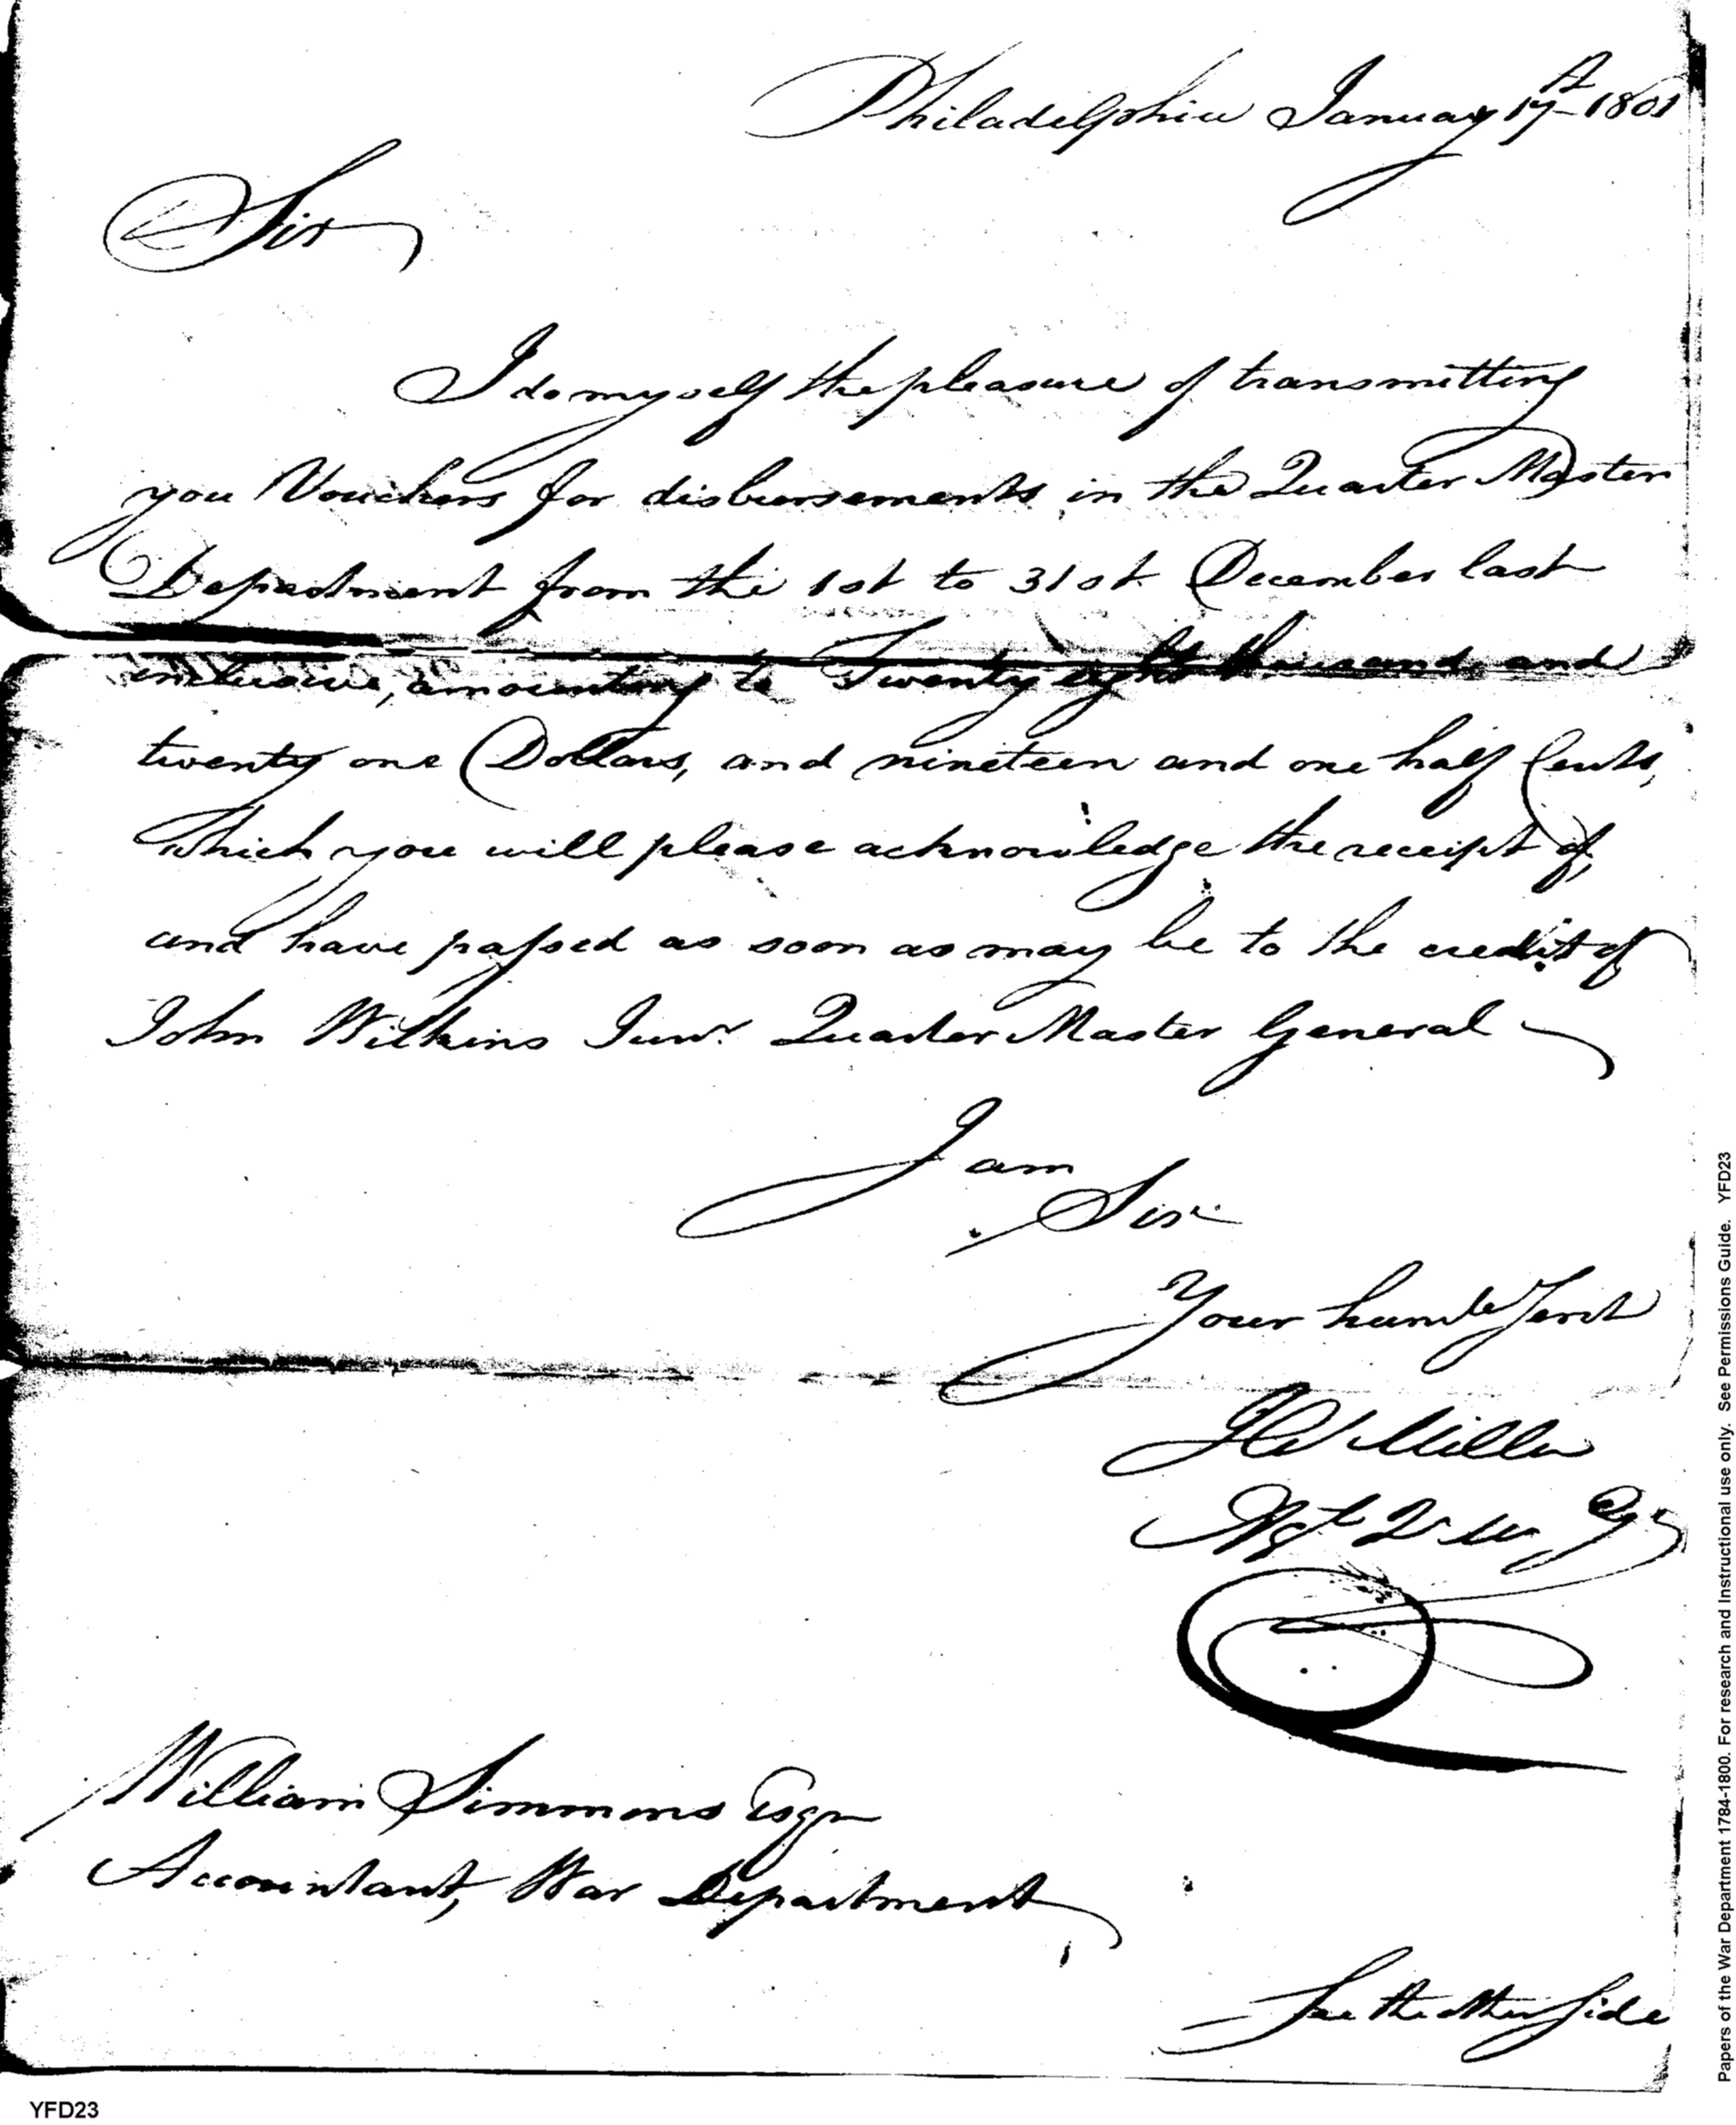 Philadelphia January 17th 1801
Sir
I do myself the pleasure of transmitting
you Vouchers for disbursements in the Quarter Master
Department from the 1st to 31st December last
inclusive, amounting to Twenty eight thousand and
twenty one Dollars, and nineteen and one half Cents,
which you will please acknowledge the receipt of,
and have passed as soon as may be to the credit of
John Wilkins Junr. Quarter Master General
I am
Sir
Your humle Servt
Miller
Agt Q M G
William Simmons Esqr
Accountant, War Department
See the other side
YFD23
Papers of the War Department 1784-1800. For research and instructional use only. See Permissions Guide. YFD23